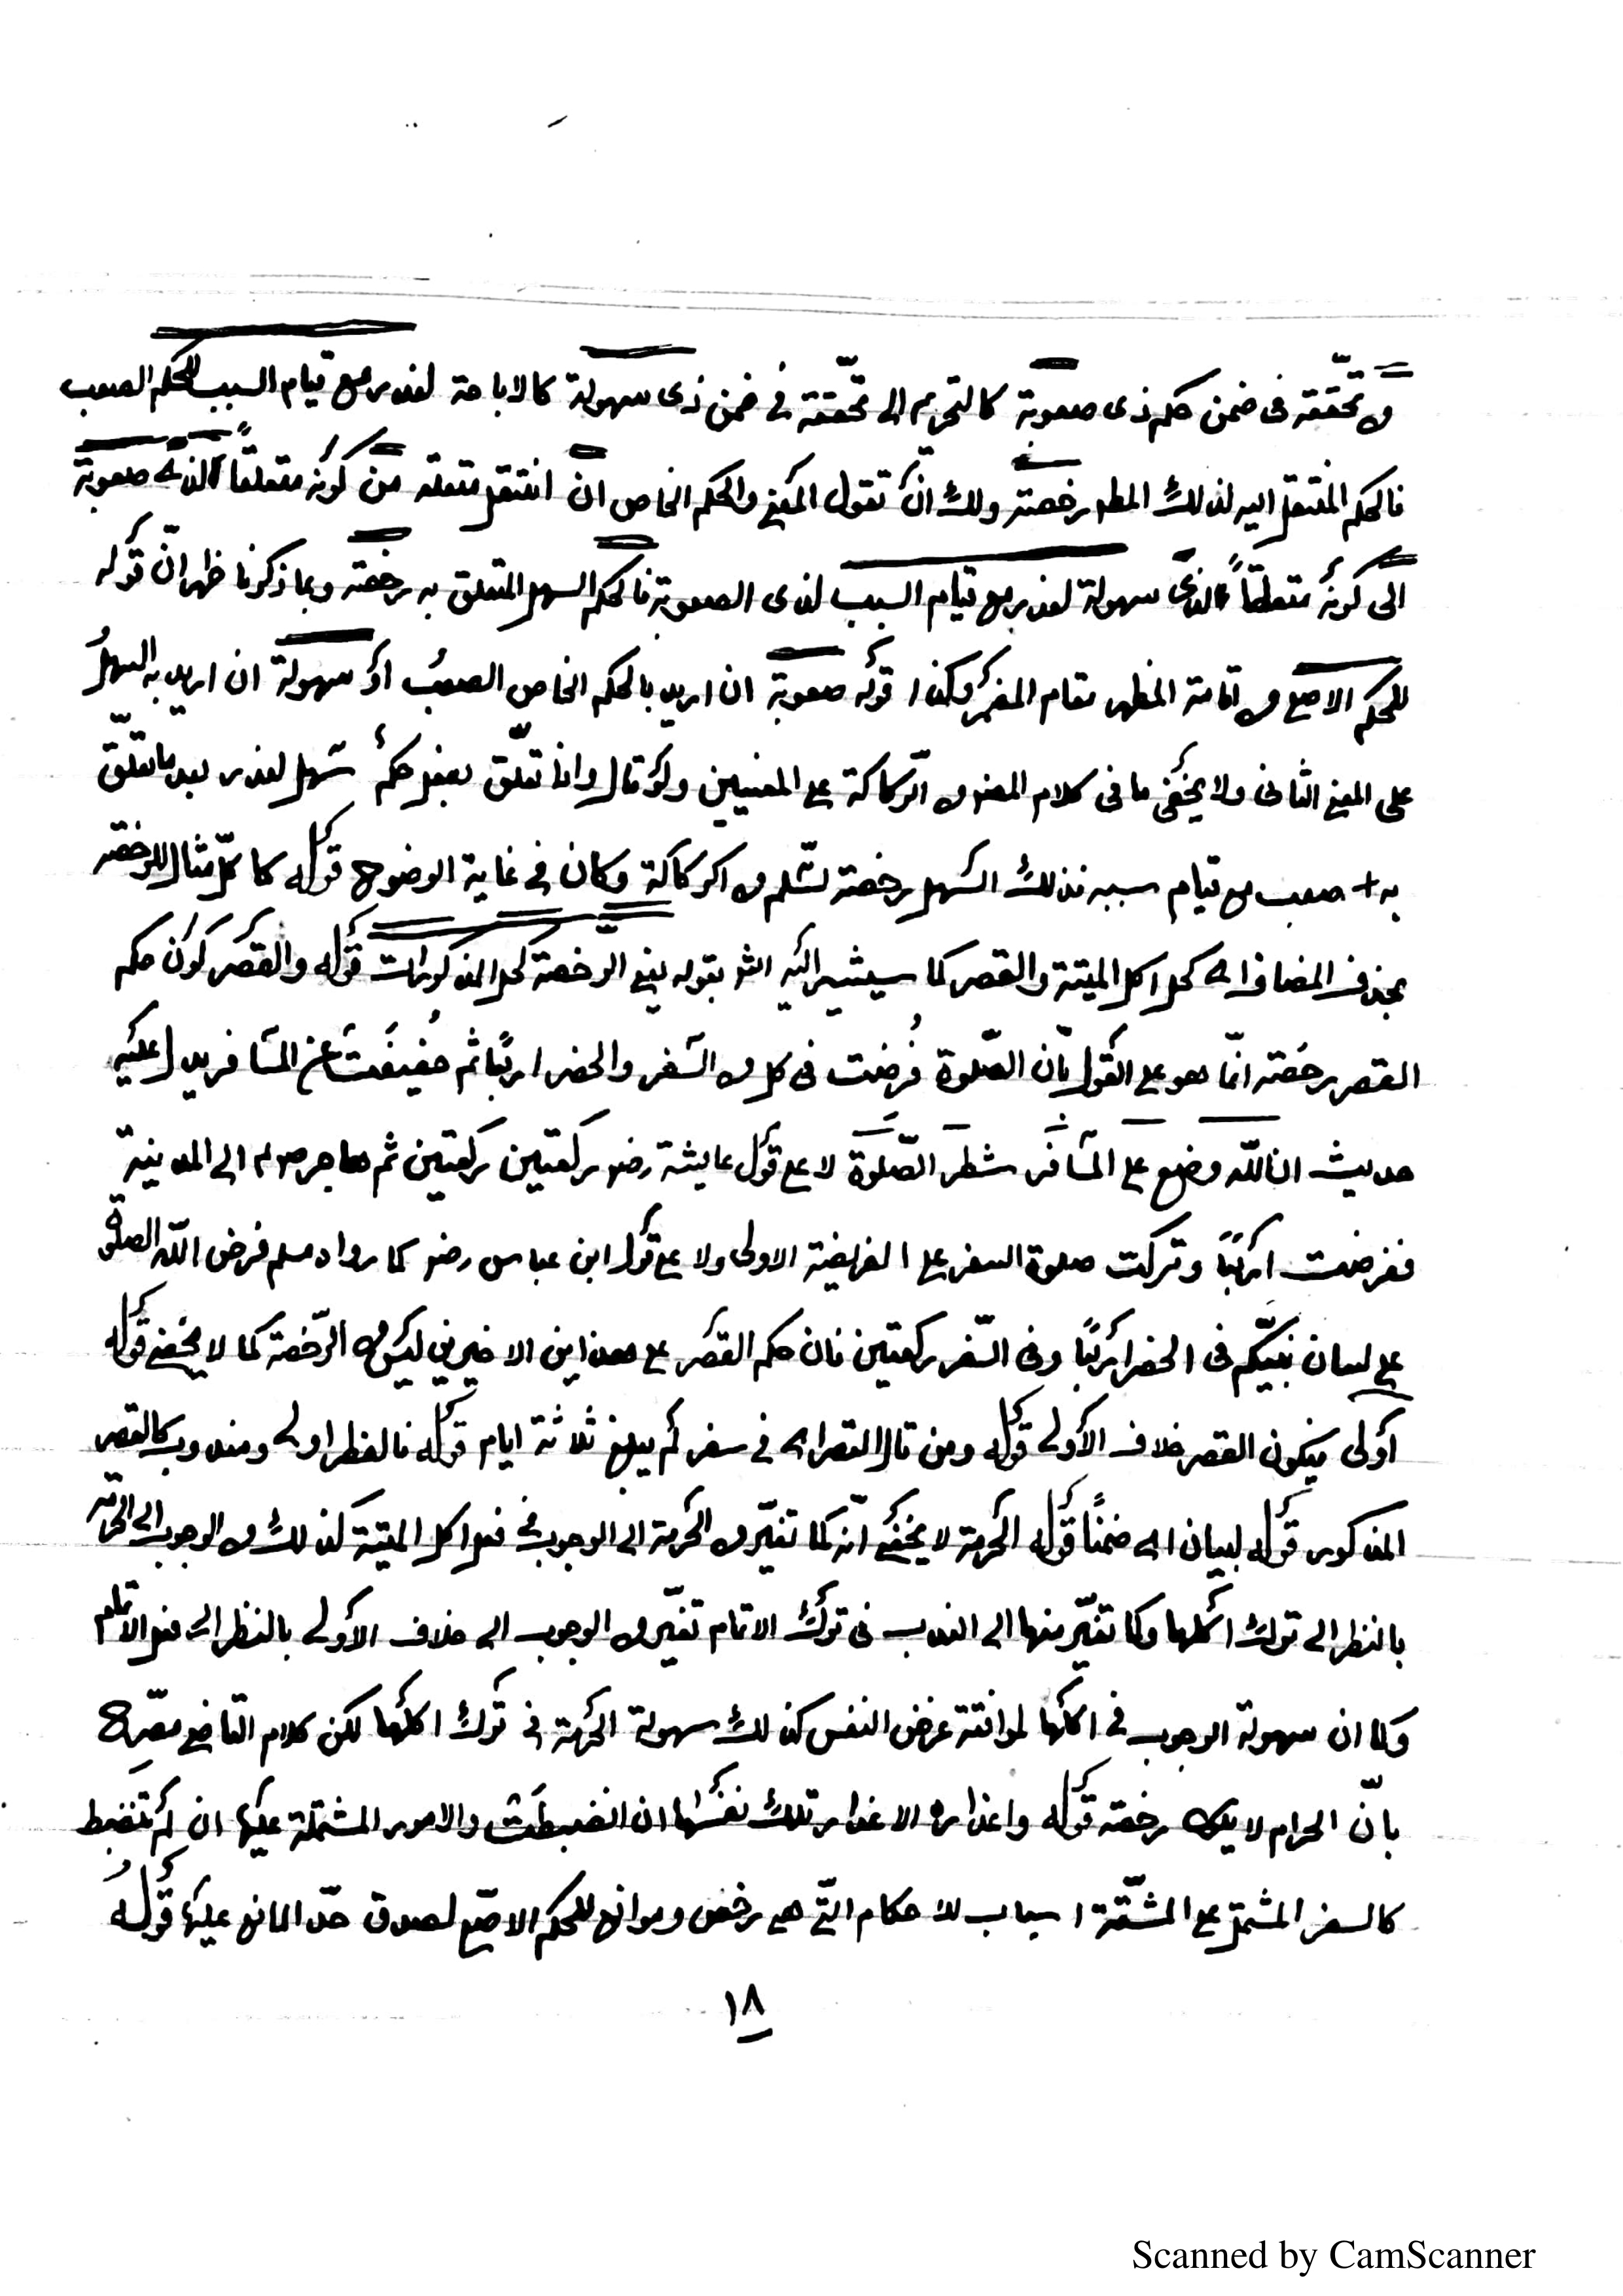 من تحققه فى ضمن حكم ذى صعوبة كالتحريم الى تحققه فى ضمن ذى سهولة كالاباحة لعذر مع قيام السبب للحكم الصعب
فالحكم المنتقل اليه لذلك المط رخصة ولك ان تقول المعنى والحكم الخاص ان انتقل متعلقه من كونه متعلقاً لذى صعوبة
الى كونه متعلقاً لذى سهولة لعذر مع قيام السبب لذى الصعوبة فالحكم السهل المتعلق به رخصة وبما ذكرنا ظهر انّ قوله
للحكم الاصلى من اقامة المظهر مقام المضمر وكذا قوله صعوبة ان اريد بالحكم الخاص الصعب او سهولة ان اريد به السهل
على المعنى الثانى ولا يخفى ما فى كلام المصنف من الركاكة على المعنيين ولو قال واذا تعلّق بفعل حكم سهل لعذر بعد ما تعلّق
به صعب مع قيام سببه فذلك السهل رخصة لسلم من الركاكة وكان فى غاية الوضوح قوله كاكل مثال للرخصة
بحذف المضاف اى كحل اكل الميتة والقصر كما سيشير اليه الش بقوله يعنى الرخصة كحل المذكورات قوله والقصر كون حكم
القصر رخصة انّما هو على القول بان الصّلوة فُرضت فى كل من السّفر والحضر اربعًا ثم خفيفت عن المسافر يدل عليه
حديث ان الله وضع على المسافر شطر الصّلوة لا على قول عايشة رضو ركعتين ركعتين ثم هاجر صوم الى المدينة
ففرضت اربعًا وتركت صلوة السفر على الفريضة الاولى ولا على قول ابن عباس رضو كما رواه مسلم فرض الله الصلوة
على لسان نبيّكم فى الحضر اربعًا وفى السّفر ركعتين فان حكم القصر على هذاين الاخيرين ليس من الرّخصة كما لا يخفى قوله
أولى فيكون القصر خلاف الأولى قوله ومن قال القصر اى فى سفر لم يبلغ ثلاثة ايام قوله فالفطر اولى ومندوب كالقصر
المذكور قوله لبيان اى ضمنًا قوله الحرمة لا يخفى انّه كما تغيّر من الحرمة الى الوجوب فى فعل اكل الميتة كذلك من الوجوب الى الحرمة
بالنظر الى ترك اكلها وكما تغيّر منها الى الندب فى ترك الاتمام تغيّر من الوجوب الى خلاف الأولى بالنظر الى فعل الاتمام
وكما ان سهولة الوجوب فى اكلها لموافقة غرض النفس كذلك سهولة الحرمة فى ترك اكلها لكن كلام القاضى مصرّح
بانّ الحرام لا يكون رخصة قوله واعذاره الاعذار تلك نفسها ان انضبطت والامور المشتملة عليها ان لم تنضبط
كالسفر المشتمل على المشقّة اسباب للاحكام الّتى هى رخص وموانع للحكم الاصلى لصدق حدّ المانع عليها قوله
١٨
Scanned by CamScanner